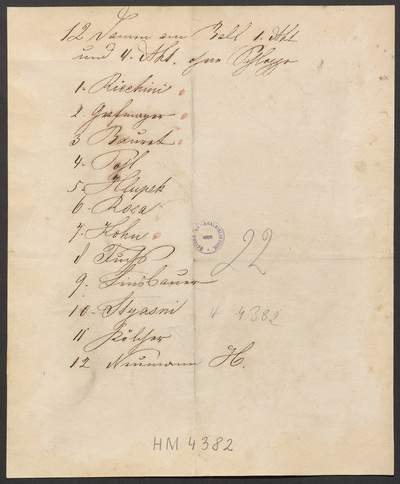 12 Damen am Ball 1. Akt
und 4. Akt. ohne Schleppe
1. Ricchini
2. Grafmayer
3 Bauret
4. Pohl
5. Klupek
6. Rosa
7. Kohn
8 Fuchs
9. Linsbauer
10. Styasni
11 Kölscher
12 Neumann H.
22
4 4382
HM 4382